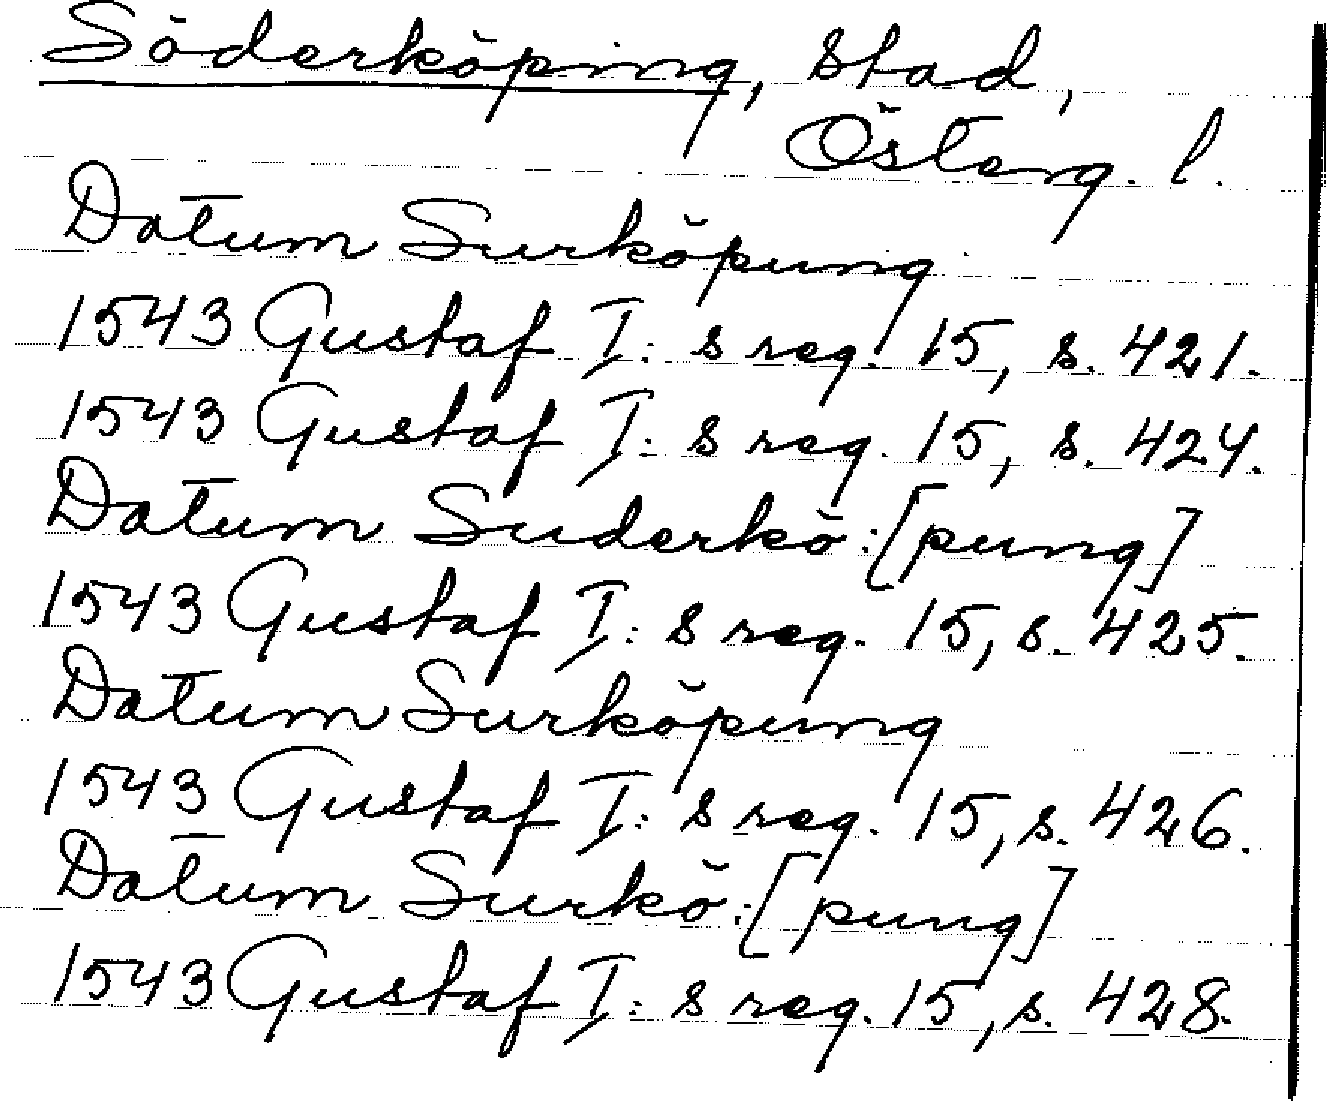 Söderköping, stad,
Österg. l.
Datum Surköpung
1543 Gustaf I:s reg. 15, s. 421.
1543 Gustaf I:s reg. 15, s. 424.
Datum Suderkö:[pung]
1543 Gustaf I:s reg. 15, s. 425.
Datum Surköpung
1543 Gustaf I:s reg. 15, s. 426.
Datum Surkö:[pung]
1543 Gustaf I:s reg. 15, s. 428.